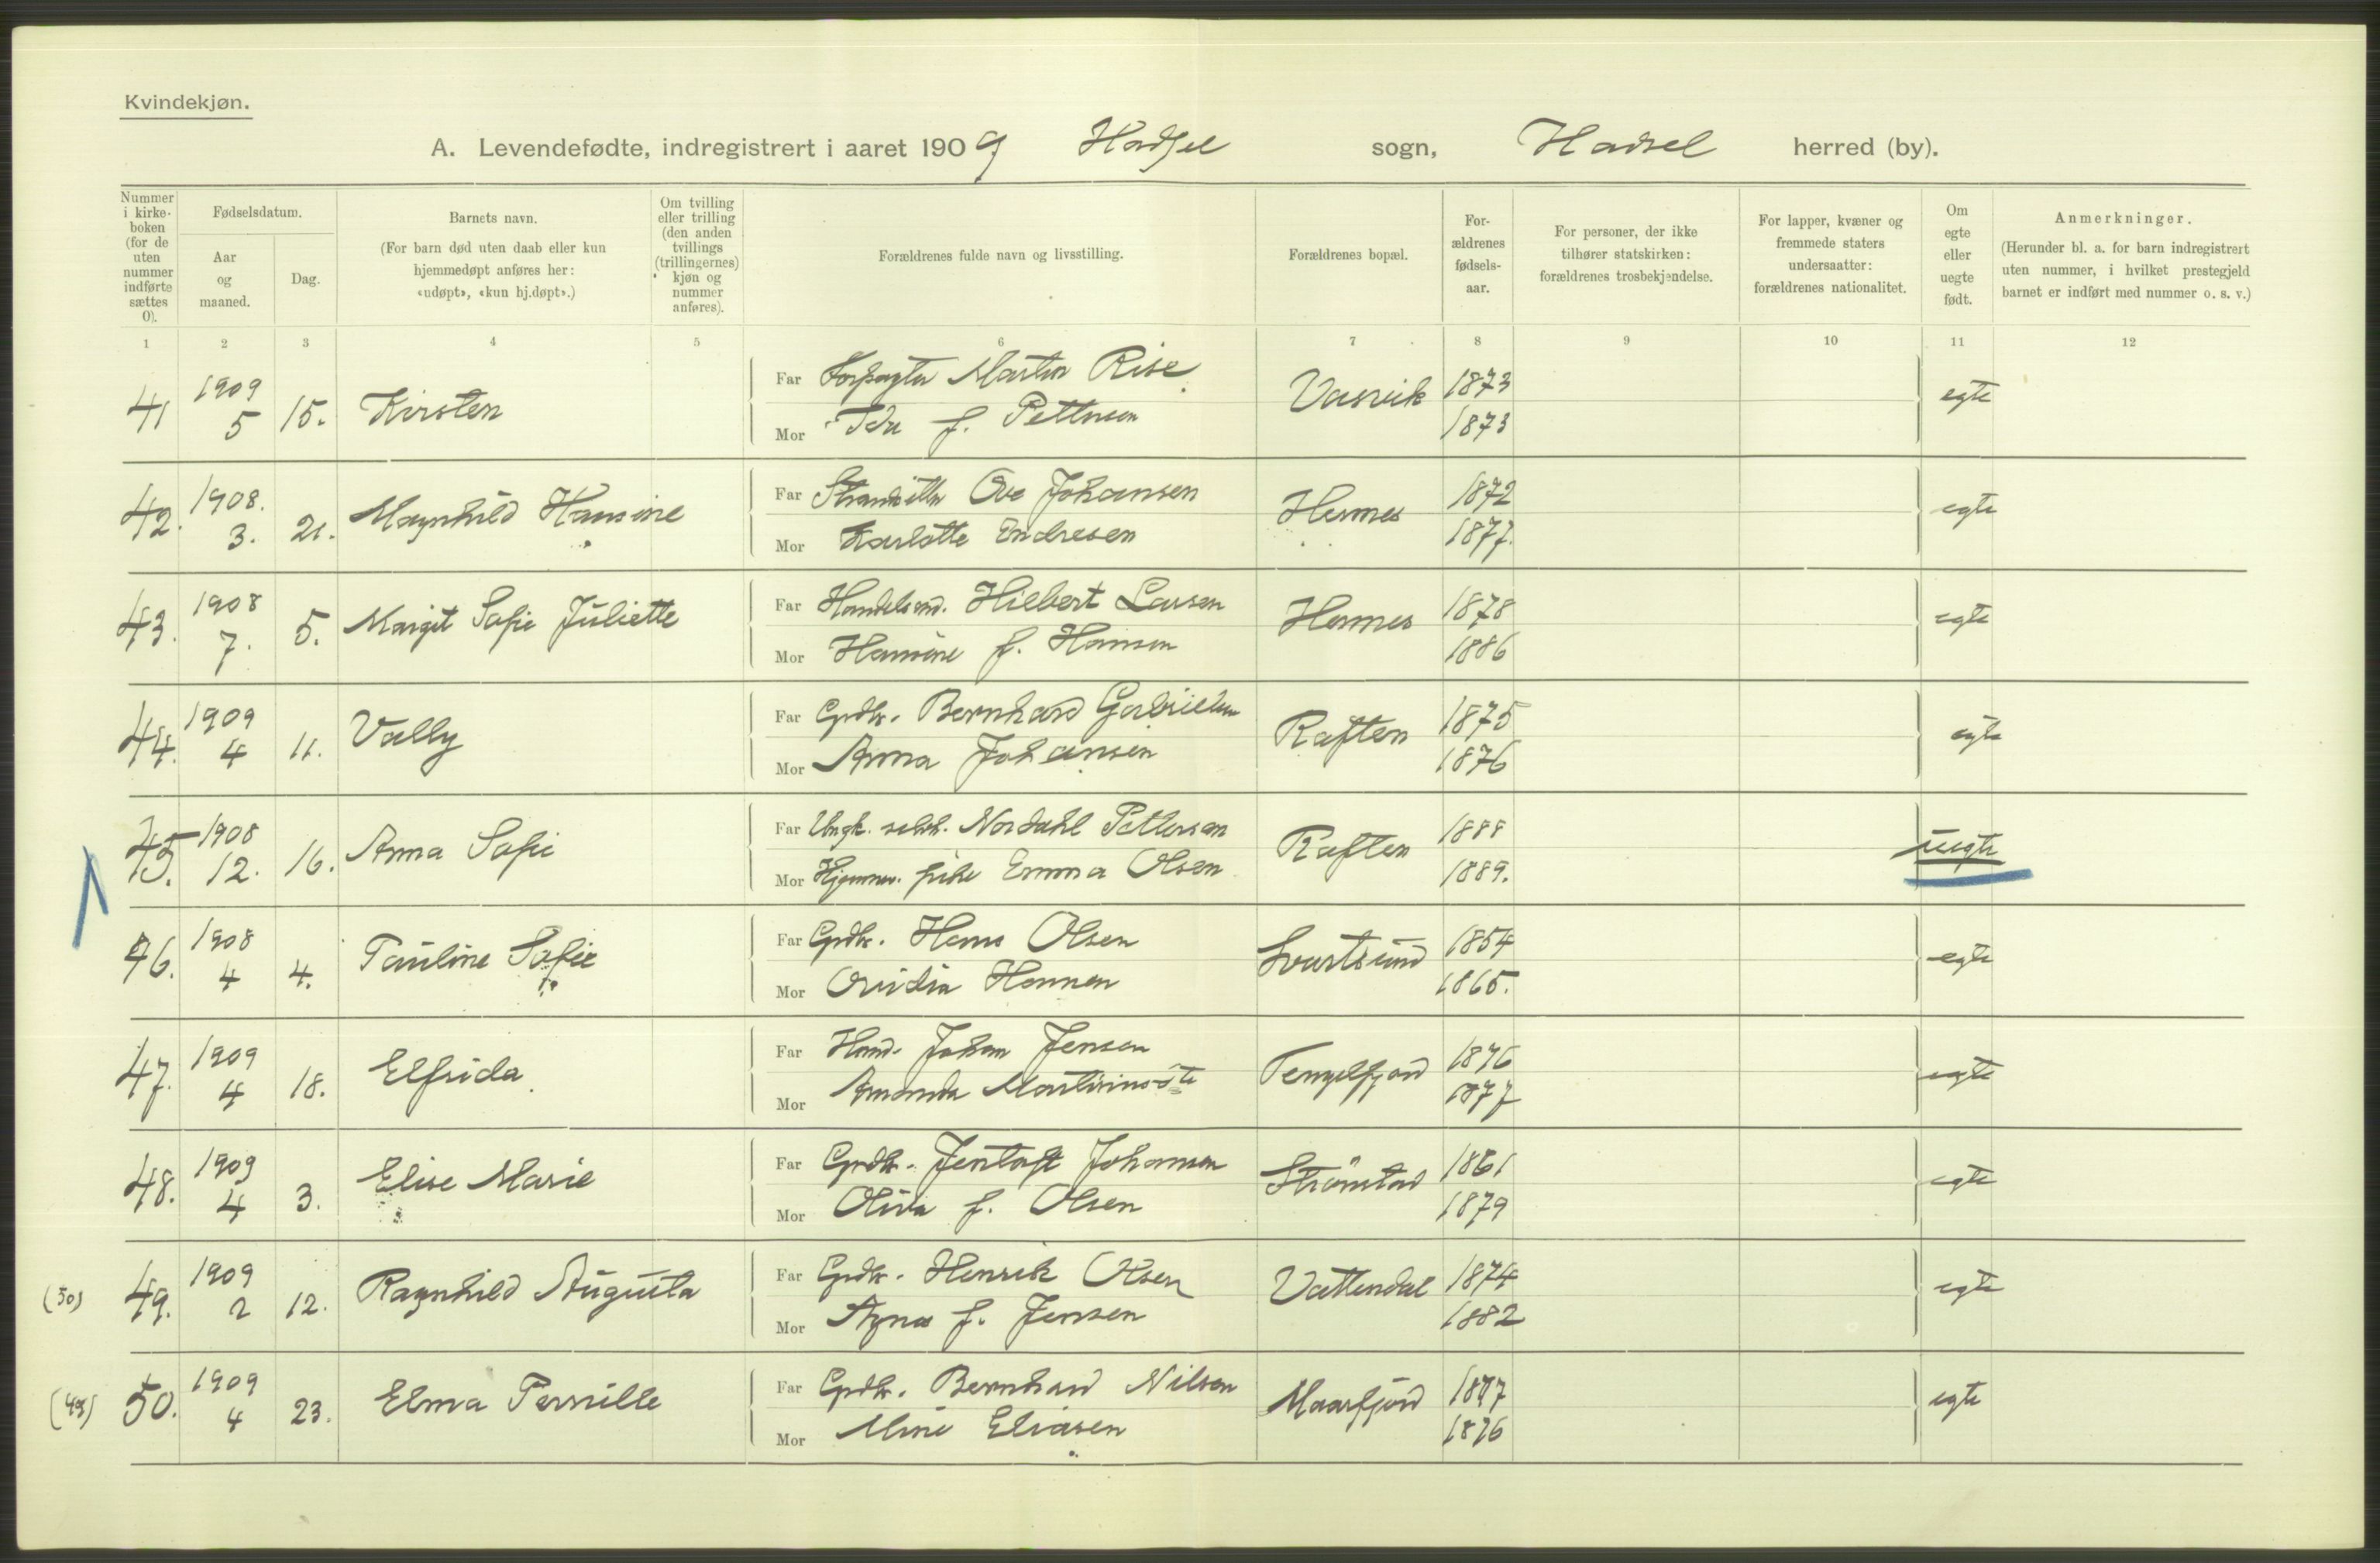 Kvindekjøn.
A. Levendefødte, indregistrert i aaret 1909 Hadsel sogn, Hadsel herred (by).
Nummer i kirke-boken (for de uten nummer indførte sættes 0).
Fødselsdatum.
Aar og maaned.
Dag.
Barnets navn.
(For barn død uten daab eller kun hjemmedøpt anføres her: «udøpt», «kun hj.døpt».)
Om tvilling eller trilling (den anden tvillings (trillingernes) kjøn og nummer anføres).
Forældrenes fulde navn og livsstilling.
Forældrenes bopæl.
For-ældrenes fødsels-aar.
For personer, der ikke tilhører statskirken: forældrenes trosbekjendelse.
For lapper, kvæner og fremmede staters undersaatter: forældrenes nationalitet.
Om egte eller uegte født.
Anmerkninger.
(Herunder bl. a. for barn indregistrert uten nummer, i hvilket prestegjeld barnet er indført med nummer o. s. v.)
1 2 3 4 5 6 7 8 9 10 11 12
41 1909 5 15. Kirsten
Far Forpagter Martin Rise Vasvik 1873 egte
Mor Ida f. Pettersen 1873
42. 1908. 3. 21. Magnhild Hansine
Far Ove Johansen Hernes 1872 egte
Mor Karlotte Endresen 1877.
43. 1908 7. 5. Margit Sofie Juliette
Far Handelsmd. Hilbert Larsen Hernes 1878 egte
Mor Hansine f. Hansen 1886
44. 1909 4 11. Vally
Far Grdbr. Bernhard Gabrielsen Raften 1875 egte
Mor Anna Johansen 1876
45. 1908 12. 16. Anna Sofie
Far Ungk. Nordahl Pettersen Raften 1888 uegte
Mor pike Emma Olsen 1889.
46. 1908 4 4. Pauline Sofie
Far Grdbr. Hans Olsen Svartsund 1854 egte
Mor Ovidia Hansen 1865.
47. 1909 4 18. Elfrida
Far Hand. Johan Jensen Tengelfjord 1876 egte
Mor Amanda 1877
48. 1909 4 3. Elise Marie
Far Grdbr. Jentoft Johansen Strømstad 1861 egte
Mor Oliva f. Olsen 1879
(50) 49. 1909 2 12. Ragnhild Augusta
Far Grdbr. Henrik Olsen Vattendal 1874 egte
Mor Agnes f. Jensen 1882
(49) 50. 1909 4 23. Elma Pernille
Far Grdbr. Bernhard Nilsen Maarfjord 1877 egte
Mor Mine Eliasen 1876